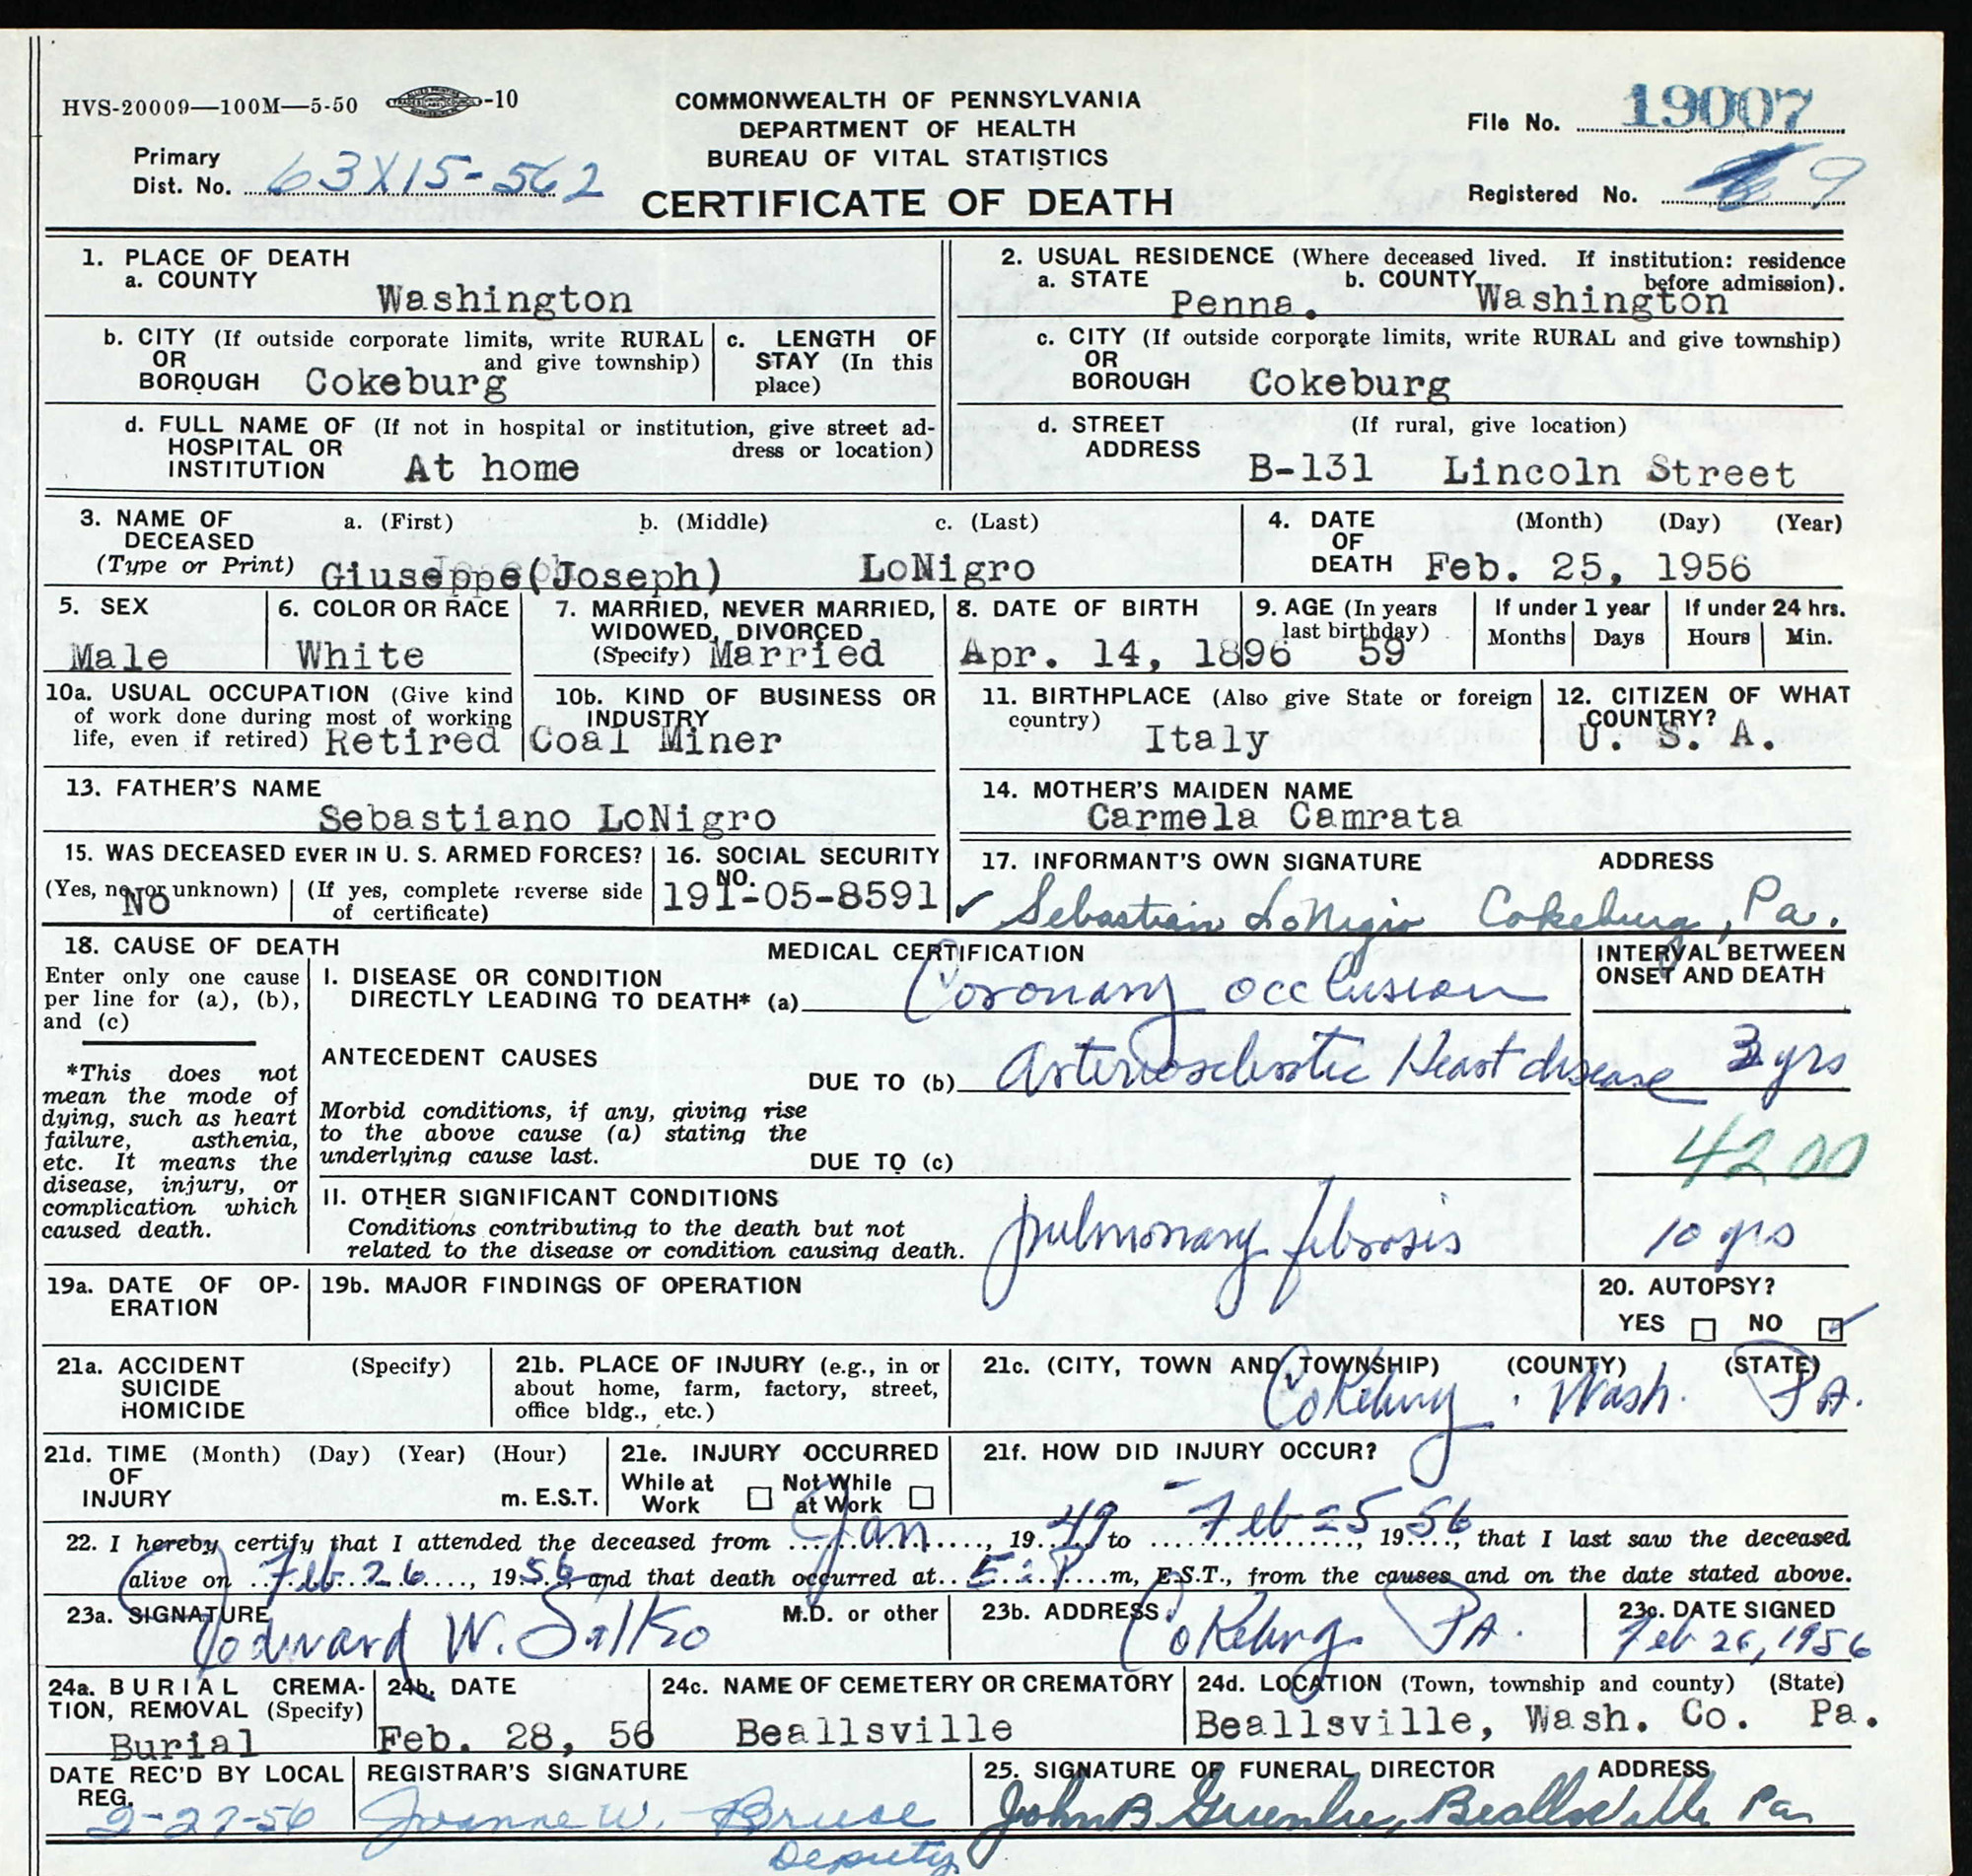 HVS-20009—100M—5-50 -10
COMMONWEALTH OF PENNSYLVANIA
DEPARTMENT OF HEALTH
BUREAU OF VITAL STATISTICS
CERTIFICATE OF DEATH
File No. 19007
Primary
Dist. No. 63X15-562
Registered No. 9
1. PLACE OF DEATH
a. COUNTY
Washington
b. CITY (If outside corporate limits, write RURAL
OR and give township)
BOROUGH Cokeburg
c. LENGTH OF
STAY (In this
place)
d. FULL NAME OF (If not in hospital or institution, give street ad-
HOSPITAL OR dress or location)
INSTITUTION At home
2. USUAL RESIDENCE (Where deceased lived. If institution: residence
before admission).
a. STATE Penna. b. COUNTY Washington
c. CITY (If outside corporate limits, write RURAL and give township)
OR
BOROUGH Cokeburg
d. STREET (If rural, give location)
ADDRESS B-131 Lincoln Street
3. NAME OF a. (First) b. (Middle) c. (Last)
DECEASED
(Type or Print) Giuseppe(Joseph) LoNigro
4. DATE (Month) (Day) (Year)
OF
DEATH Feb. 25, 1956
5. SEX
Male
6. COLOR OR RACE
White
7. MARRIED, NEVER MARRIED,
WIDOWED, DIVORCED
(Specify) Married
8. DATE OF BIRTH
Apr. 14, 1896
9. AGE (In years
last birthday)
59
If under 1 year
Months Days
If under 24 hrs.
Hours Min.
10a. USUAL OCCUPATION (Give kind
of work done during most of working
life, even if retired) Retired
10b. KIND OF BUSINESS OR
INDUSTRY
Coal Miner
11. BIRTHPLACE (Also give State or foreign
country)
Italy
12. CITIZEN OF WHAT
COUNTRY?
U. S. A.
13. FATHER'S NAME
Sebastiano LoNigro
14. MOTHER'S MAIDEN NAME
Carmela Camrata
15. WAS DECEASED EVER IN U. S. ARMED FORCES?
(Yes, no, or unknown) (If yes, complete reverse side
of certificate)
No
16. SOCIAL SECURITY
NO.
191-05-8591
17. INFORMANT'S OWN SIGNATURE ADDRESS
Sebastian LoNigro Cokeburg, Pa.
18. CAUSE OF DEATH
Enter only one cause
per line for (a), (b),
and (c)
*This does not
mean the mode of
dying, such as heart
failure, asthenia,
etc. It means the
disease, injury, or
complication which
caused death.
MEDICAL CERTIFICATION
INTERVAL BETWEEN
ONSET AND DEATH
I. DISEASE OR CONDITION
DIRECTLY LEADING TO DEATH* (a) Coronary occlusion
ANTECEDENT CAUSES
DUE TO (b) Arteriosclerotic Heart disease 3 yrs
Morbid conditions, if any, giving rise
to the above cause (a) stating the
underlying cause last.
DUE TO (c)
4200
II. OTHER SIGNIFICANT CONDITIONS
Conditions contributing to the death but not
related to the disease or condition causing death.
pulmonary fibrosis 10 yrs
19a. DATE OF OP-
ERATION
19b. MAJOR FINDINGS OF OPERATION
20. AUTOPSY?
YES NO
21a. ACCIDENT (Specify)
SUICIDE
HOMICIDE
21b. PLACE OF INJURY (e.g., in or
about home, farm, factory, street,
office bldg., etc.)
21c. (CITY, TOWN AND TOWNSHIP) (COUNTY) (STATE)
Cokeburg. Wash. PA.
21d. TIME (Month) (Day) (Year) (Hour)
OF
INJURY m. E.S.T.
21e. INJURY OCCURRED
While at Work Not While at Work
21f. HOW DID INJURY OCCUR?
22. I hereby certify that I attended the deceased from Jan, 1949 to Feb 25, 1956 that I last saw the deceased
alive on Feb 26, 1956, and that death occurred at m, E.S.T., from the causes and on the date stated above.
23a. SIGNATURE M.D. or other
Edward W. Salko
23b. ADDRESS
Cokeburg PA.
23c. DATE SIGNED
Feb 26, 1956
24a. BURIAL CREMA-
TION, REMOVAL (Specify)
Burial
24b. DATE
Feb. 28, 56
24c. NAME OF CEMETERY OR CREMATORY
Beallsville
24d. LOCATION (Town, township and county) (State)
Beallsville, Wash. Co. Pa.
DATE REC'D BY LOCAL
REG.
2-27-56
REGISTRAR'S SIGNATURE
Joanne W. Bruse
Deputy
25. SIGNATURE OF FUNERAL DIRECTOR ADDRESS
John B Greenlee, Beallsville Pa